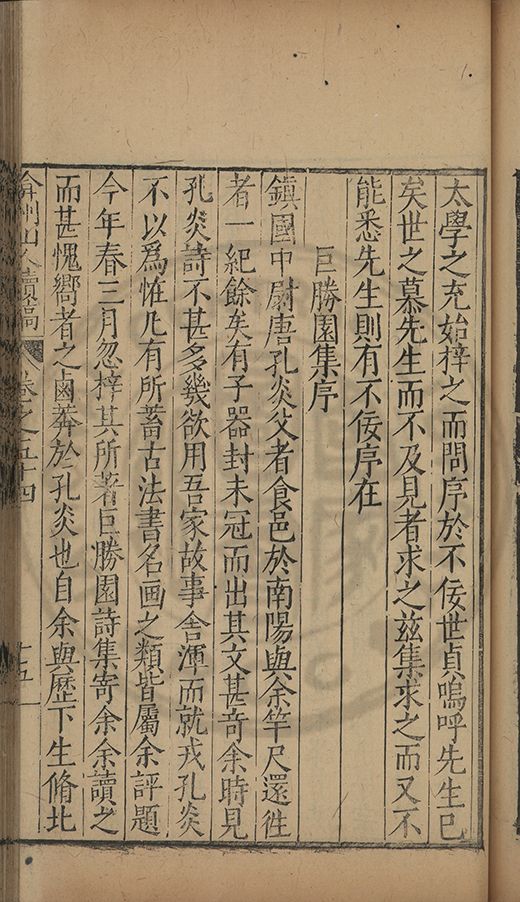 太學之充始梓之而問序於不佞世貞嗚呼先生已
矣世之慕先生而不及見者求之兹集求之而又不
能悉先生則有不佞序在
巨勝園集序
鎮國中尉唐孔炎父者食邑於南陽與余竿尺還徃
者一紀餘矣有子器封未冠而出其文甚奇余時見
孔炎詩不甚多幾欲用吾家故事舎渾而就戎孔炎
不以爲恠凡有所蓄古法書名画之類皆屬余評題
今年春三月忽梓其所著巨勝園詩集寄余余讀之
而甚愧嚮者之鹵莽於孔炎也自余與歴下生脩北
弇州山人續稿 卷之五十四 十五